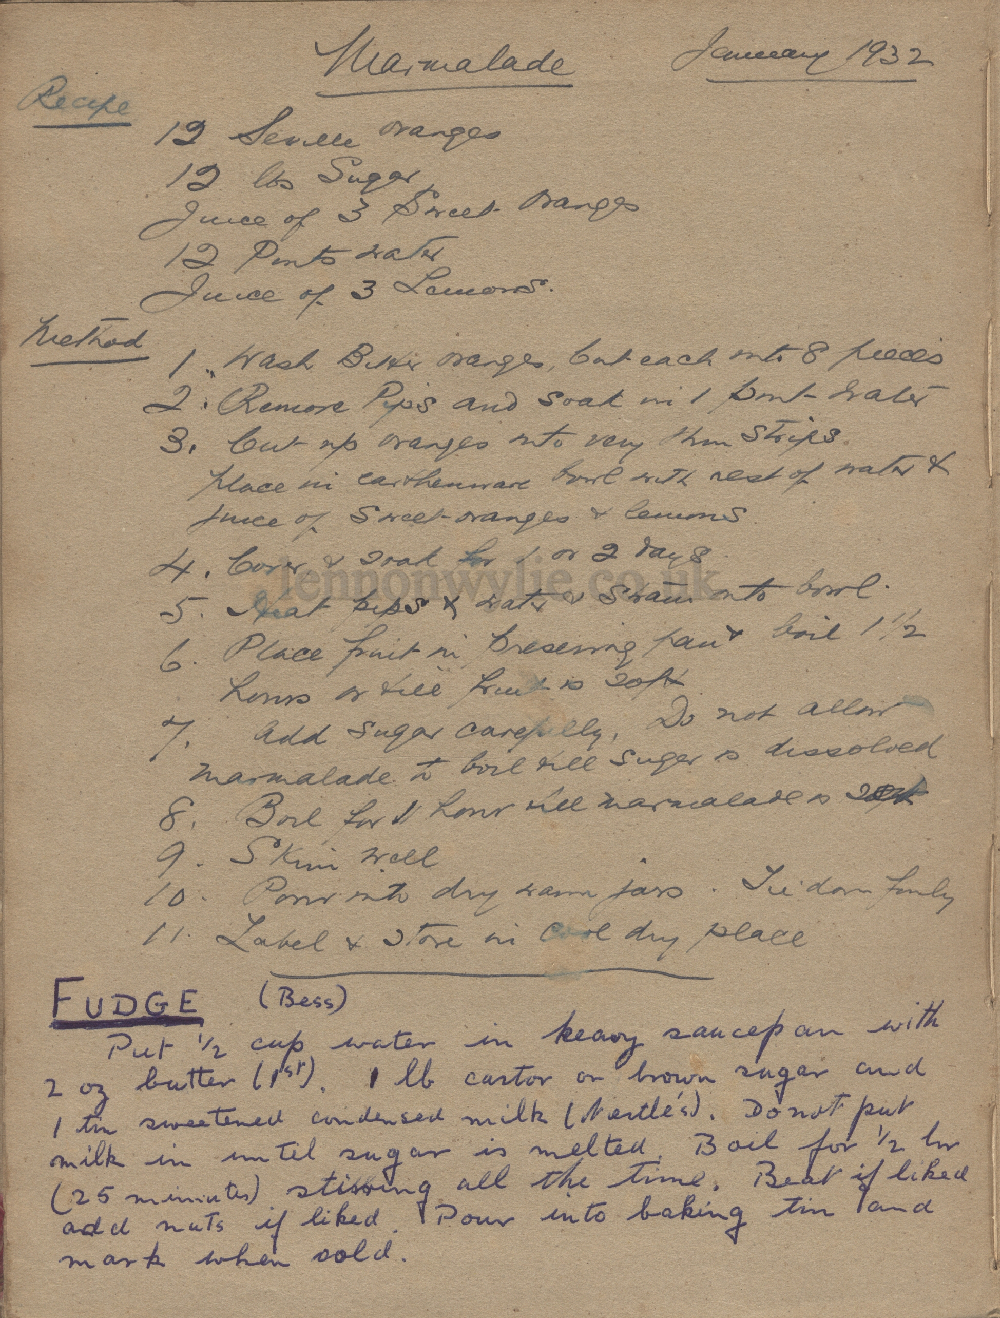 Marmalade January 1932
Recipe
12 Seville oranges
12 lbs Sugar
Juice of 3 Sweet oranges
12 Pints water
Juice of 3 Lemons.
Method
1. Wash Bitter oranges, Cut each into 8 pieces
2. Remove Pips and soak in 1 pint water
3. Cut up oranges into very thin strips.
Place in earthenware bowl with rest of water &
juice of Sweet oranges & lemons
4. Cover & soak for 1 or 2 days
lennonwylie.co.uk
5. Heat pips & water & strain into bowl.
6. Place fruit in Preserving pan & boil 1 1/2
hours or till fruit is soft
7. Add sugar carefully, Do not allow
marmalade to boil till sugar is dissolved
8. Boil for 1 hour till marmalade is
9. Skim well
10. Pour into dry warm jars. Tie down firmly
11. Label & store in cool dry place
FUDGE (Bess)
Put 1/2 cup water in heavy saucepan with
2 oz butter (1st). 1 lb castor or brown sugar and
1 tin sweetened condensed milk (Nestlé's). Do not put
milk in until sugar is melted. Boil for 1/2 hr
(25 minutes) stirring all the time. Beat if liked
add nuts if liked. Pour into baking tin and
mark when cold.